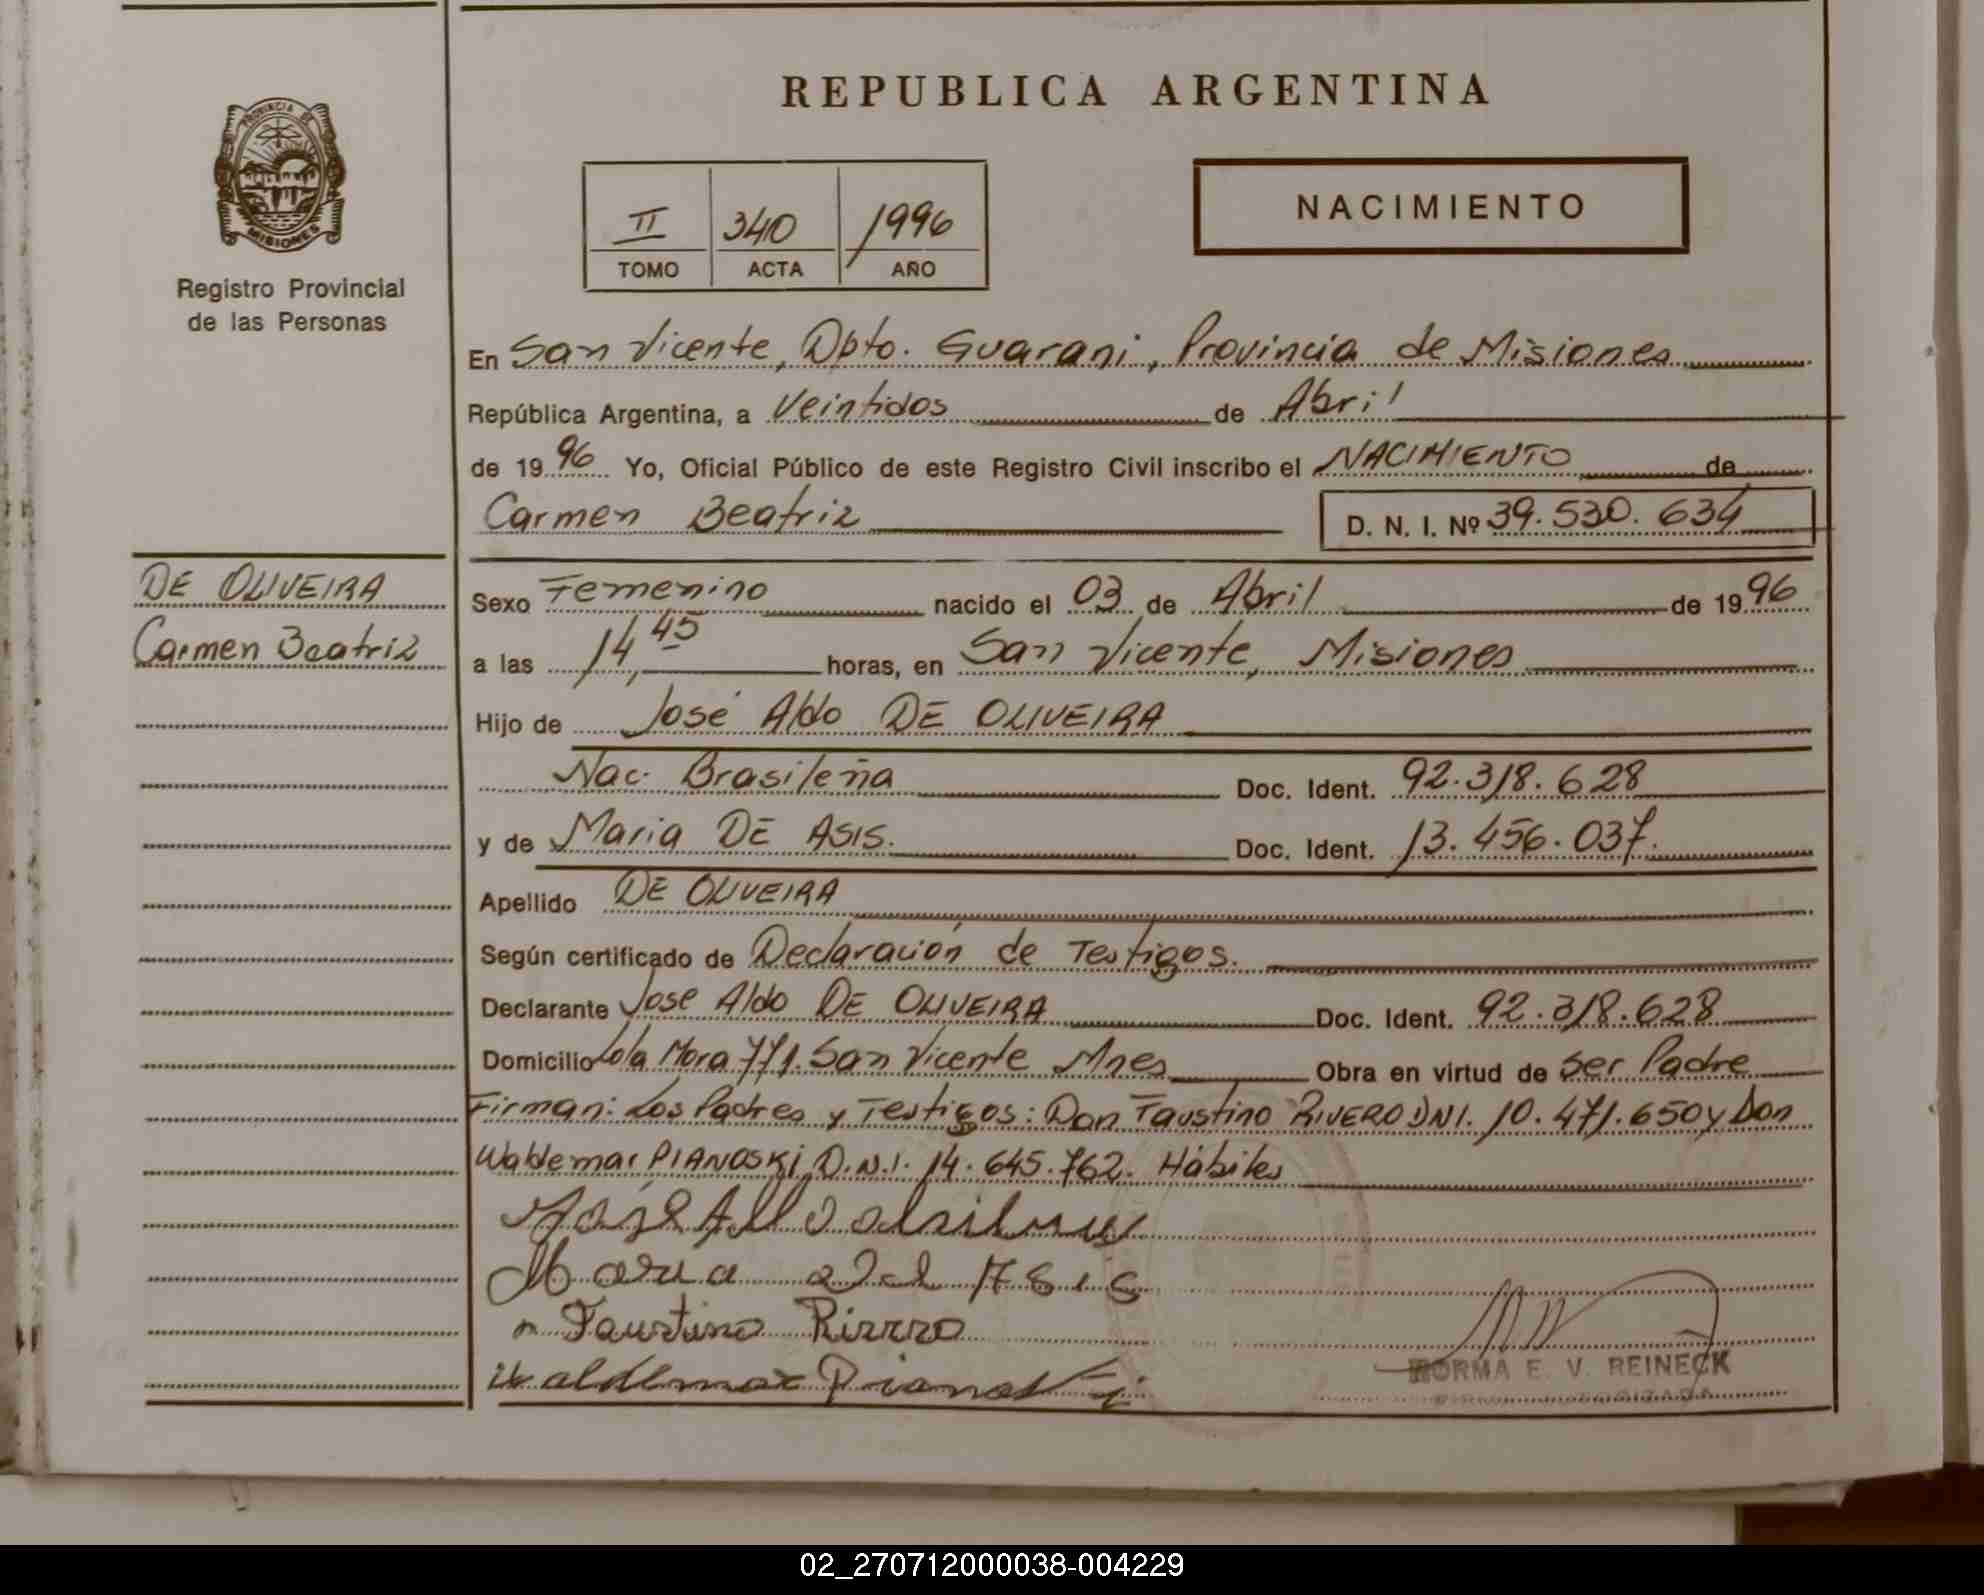 REPUBLICA ARGENTINA
PROVINCIA DE
MISIONES
Registro Provincial
de las Personas
II 340 1996
TOMO ACTA AÑO
NACIMIENTO
En San Vicente, Dpto. Guarani, Provincia de Misiones
República Argentina, a Veintidos de Abril
de 1996 Yo, Oficial Público de este Registro Civil inscribo el NACIMIENTO de
Carmen Beatriz D. N. I. Nº 39.530.634
DE OLIVEIRA
Carmen Beatriz
Sexo Femenino nacido el 03 de Abril de 1996
a las 14,45 horas, en San Vicente, Misiones
Hijo de José Aldo DE OLIVEIRA
Nac. Brasileña Doc. Ident. 92.318.628
y de Maria DE ASIS. Doc. Ident. 13.456.037.
Apellido DE OLIVEIRA
Según certificado de Declaración de Testigos.
Declarante Jose Aldo DE OLIVEIRA Doc. Ident. 92.318.628
Domicilio Lola Mora 771. San Vicente Mnes Obra en virtud de Ser Padre
Firman: Los Padres y Testigos: Don Faustino RIVERO DNI. 10.471.650 y Don
Waldemar PIANOSKI D.N.I. 14.645.762. Hábiles
Faustino
Waldemar Pianoski
NORMA E. V. REINECK
02_270712000038-004229